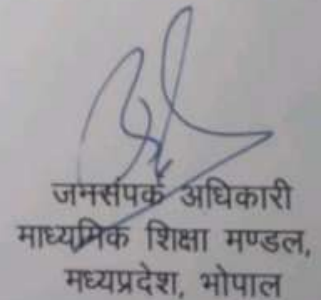 जनसंपर्क अधिकारी
माध्यमिक शिक्षा मण्डल,
मध्यप्रदेश, भोपाल